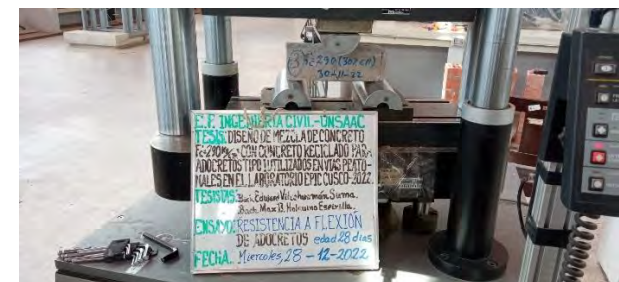 3 F'c 290 (30% CR)
30-11-22
E.P. INGENIERIA CIVIL-UNSAAC
TESIS: DISEÑO DE MEZCLA DE CONCRETO
F'c=290 CON CONCRETO RECICLADO PARA
ADOCRETOS TIPO I UTILIZADOS EN VIAS PEATO-
NALES EN EL LABORATORIO EPIC CUSCO-2022.
TESISTAS: Bach. Sucma.
Bach. Max B.
ENSAYO: RESISTENCIA A FLEXIÓN
DE ADOCRETOS edad 28 dias
FECHA: Miercoles, 28-12-2022